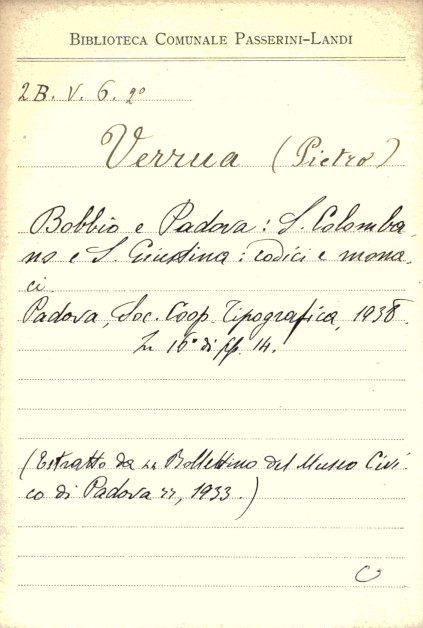 BIBLIOTECA COMUNALE PASSERINI-LANDI
2B. V. 6. 2º
Verrua (Pietro)
Bobbio e Padova: S. Colomba.
no e S. Giustina: codici e mona.
ci.
Padova, Soc. Coop. Tipografica, 1938.
In 16° di pp. 14.
(Estratto da "Bollettino del Museo Civi.
co di Padova", 1933.)